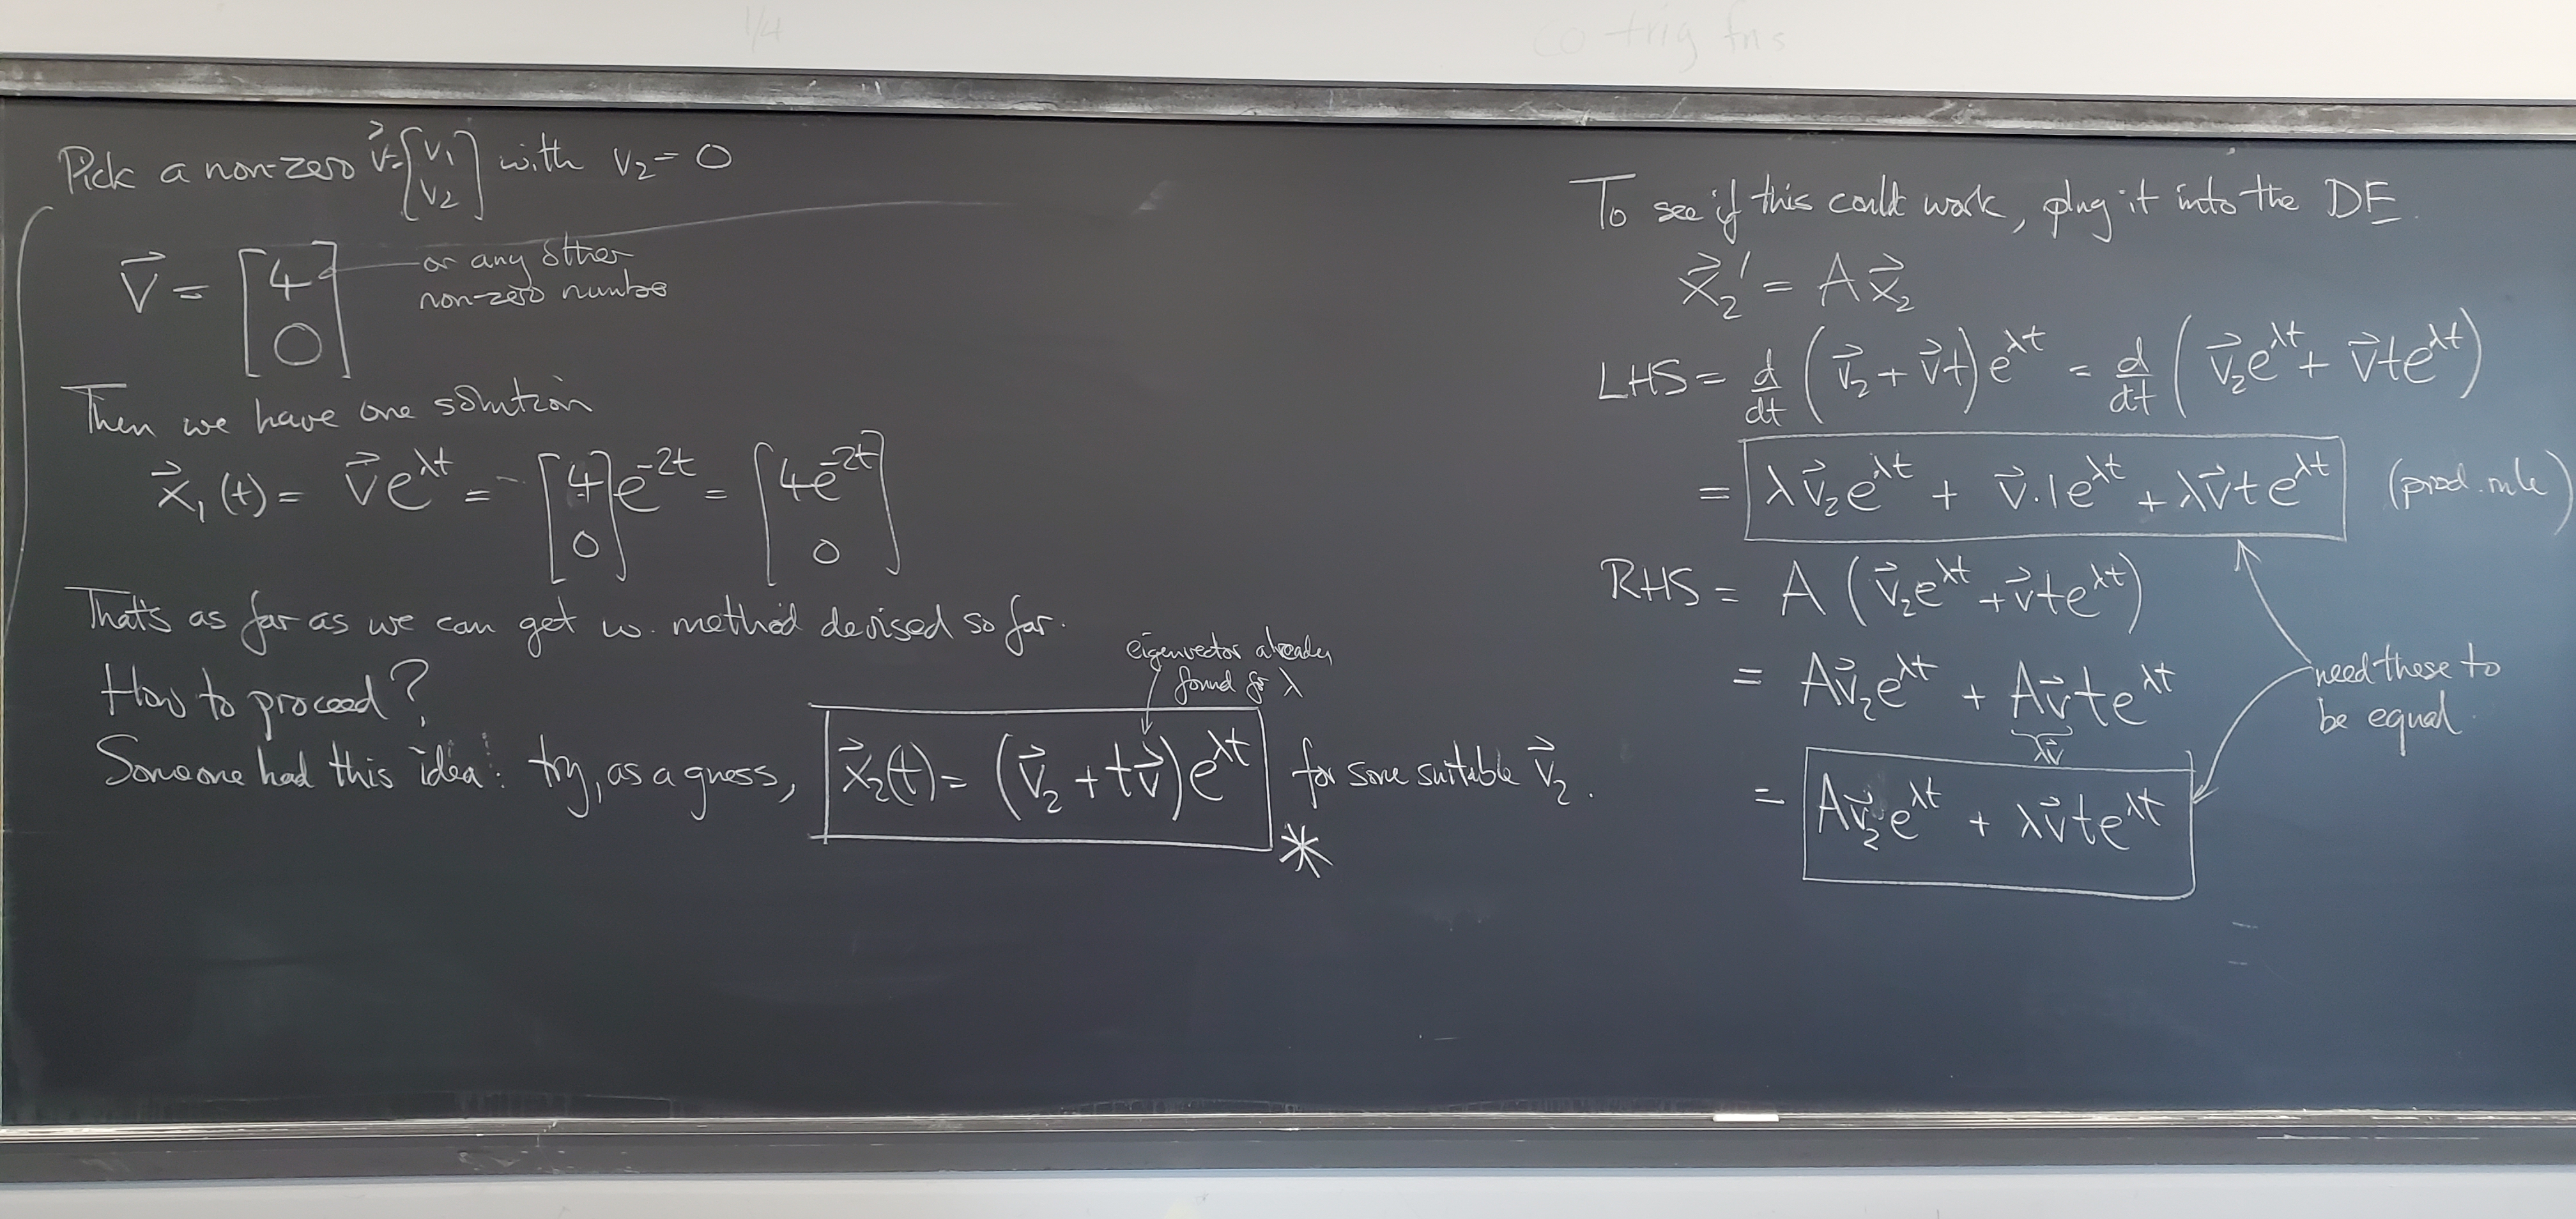 1/4
co trig fns
Pick a non-zero v⃗=[v₁ v₂] with v₂=0
v⃗ = [4 0]
or any other
non-zero number
Then we have one solution
x⃗₁(t) = v⃗e^λt = [4 0]e^-2t = [4e^-2t 0]
That's as far as we can get w. method devised so far.
How to proceed?
eigenvector already
found for λ
Someone had this idea: try, as a guess, x⃗₂(t) = (v⃗₂ + tv⃗)e^λt for some suitable v⃗₂.
*
To see if this could work, plug it into the DE.
x⃗₂′ = Ax⃗₂
LHS = d/dt (v⃗₂ + v⃗t)e^λt = d/dt (v⃗₂e^λt + v⃗te^λt)
= λv⃗₂e^λt + v⃗·1e^λt + λv⃗te^λt (prod. rule)
RHS = A(v⃗₂e^λt + v⃗te^λt)
= Av⃗₂e^λt + Av⃗te^λt
λv⃗
= Av⃗₂e^λt + λv⃗te^λt
need these to
be equal.